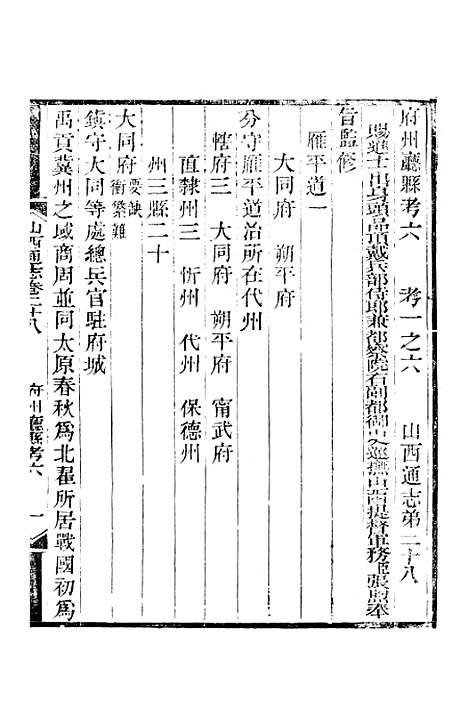 府州廳縣考六　考一之六　山西通志弟二十八
賜進士出身頭品頂戴兵部侍郎兼都察院右副都御史巡撫山西提督軍務臣張煦奉
旨監修
雁平道一
大同府　朔平府
分守雁平道治所在代州
轄府三　大同府　朔平府　甯武府
直隸州三　忻州　代州　保德州
州三縣二十
大同府要缺衝繁難
鎮守大同等處總兵官駐府城
禹貢冀州之域商周並同太原春秋為北翟所居戰國初為
山西通志卷二十八　府州廳縣考六　一